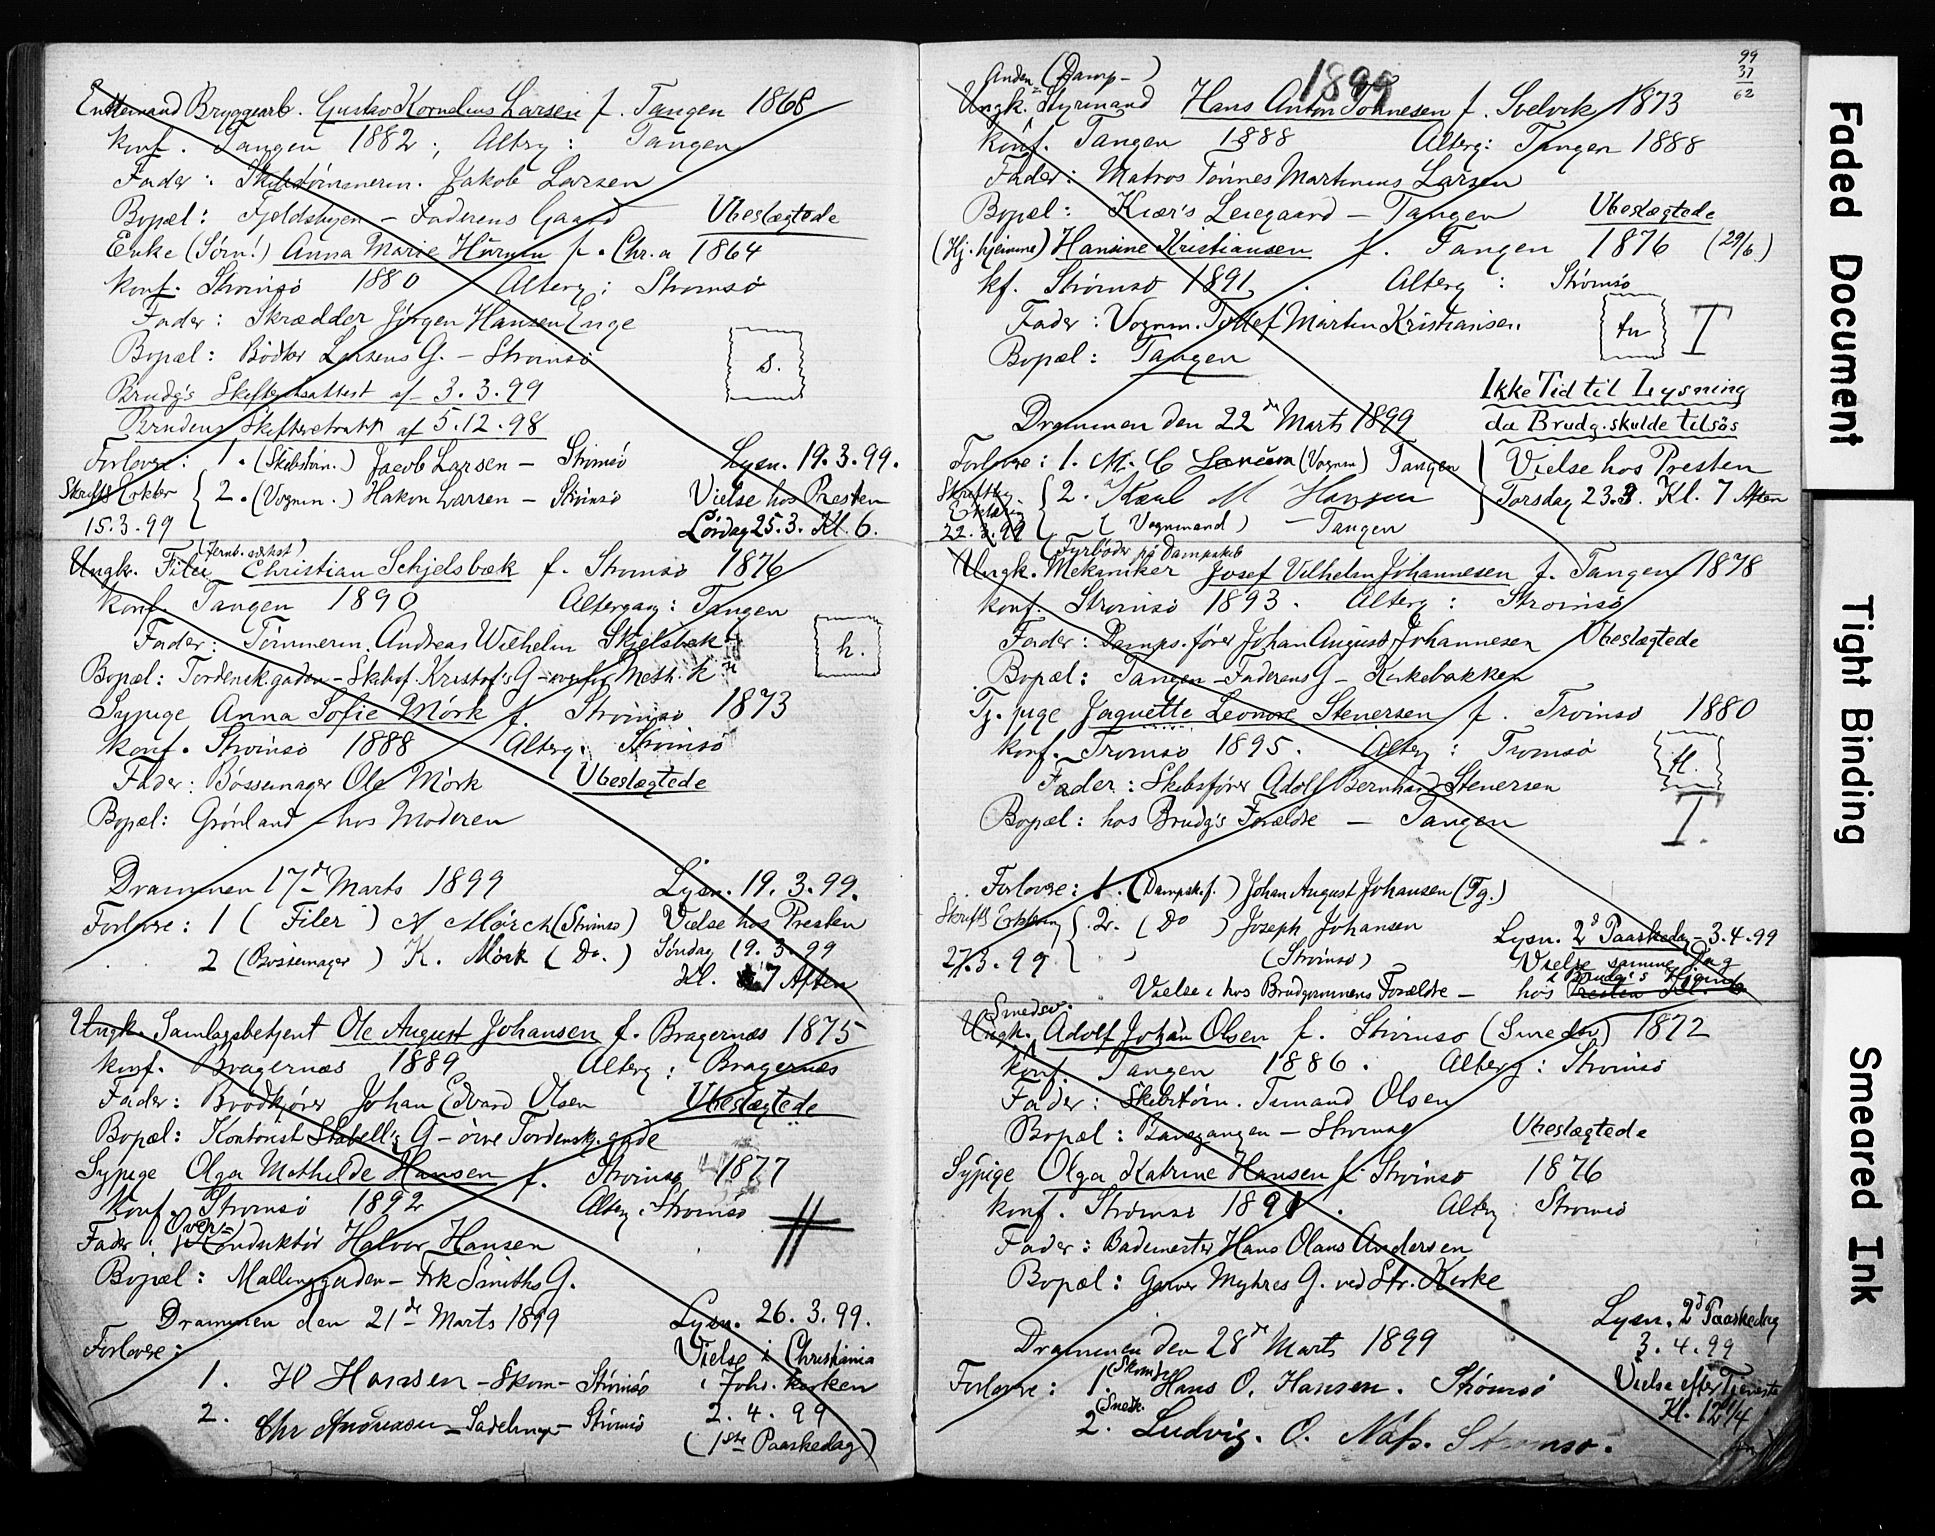 Enkemand Bryggearb. Gustav Kornelius Larsen f. Tangen 1868
konf. Tangen 1882; Alterg: Tangen
Fader: Skibstömmerm. Jakob Larsen
Bopæl: Fjeldsbyen - Faderens Gaard Ubeslægtede
Enke (Sörn!) Anna Marie f. Chr.a 1864
konf. Strömsö 1880 Alterg: Strömsö
Fader: Skrædder Jörgen Hansen Enge
Bopæl: Bödker Larsens G. - Strömsö
s.
Brudg's Skifteattest af 3.3.99
Brudens Skifteextrakt af 5.12.98
Forlovere: 1. (Skibstöm.) Jacob Larsen - Strömsö Lysn. 19.3.99.
2. (Vognm.) Hakon Larsen - Strömsö Vielse hos Presten
15.3.99 Lördag 25.3. Kl. 6.
Ungk. Filer Christian Schjelsbæk f. Strömsö 1876
konf. Tangen 1890 Altergang: Tangen
Fader: Tömmerm. Andreas Wilhelm Skjelsbæk
h.
Bopæl: Tordenskgaden - Skbf. Kristof's G - ovenfor Meth. K
Sypige Anna Sofie Mörk f. Strömsö 1873
konf. Strömsö 1888 Alterg: Strömsö
Fader: Bössemager Ole Mörk Ubeslægtede
Bopæl: Grönland hos Moderen
Drammen 17de Marts 1899 Lysn. 19.3.99.
Forlovere: 1 (Filer) A Mörch (Strömsö) Vielse hos Presten
2 (Bössemager) K. Mörk (Do.) Söndag 19.3.99
Kl. 7 Aften
Ungk. Samlagsbetjent Ole August Johansen f. Bragernæs 1875
konf. Bragernæs 1889 Alterg: Bragernæs
Fader: Brödkjörer Johan Edvard Olsen Ubeslægtede
Bopæl: Kontorist Stabell's G - övre Tordenskj.gade
Sypige Olga Mathilde Hansen f. Strömsö 1877
konf. Strömsö 1892 Alterg. Strömsö
Over-
Fader: Konduktör Halvor Hansen
Bopæl: Mallinggaden - Frk Smiths G.
Drammen den 21de Marts 1899 Lysn. 26.3.99.
Forlovere: Vielse i Christiania
1. H Hansen - Skom - Strömsö i Johs. kirken
2. Chr Andreasen - Sadelmager - Strömsö 2.4.99
(1ste Paaskedag)
1899
99
37
62
Anden (Damp-)
Ungk. Styrmand Hans Anton Tönnesen f. Svelvik 1873
konf. Tangen 1888 Alterg: Tangen 1888
Fader: Matros Tönnes Martinius Larsen
Bopæl: Kiær's Leiegaard - Tangen Ubeslægtede
(Hj. hjemme) Hansine Kristiansen f. Tangen 1876 (29/6)
kf. Strömsö 1891. Alterg: Strömsö
Fader: Vognm. Tollef Martin Kristiansen
Bopæl: Tangen
Ikke Tid til Lysning
Drammen den 22de Marts 1899 da Brudg. skulde tilsös
Forlovere: 1. M. C Larsen (Vognm) Tangen Vielse hos Presten
2. Karl M Hansen Torsdag 23.3. Kl. 7 Aften
22.3.99 (Vognmand) - Tangen
(Fyrböder på Dampskib
Ungk. Mekaniker Josef Vilhelm Johannesen f. Tangen 1878
konf. Strömsö 1893. Alterg: Strömsö
Fader: Damps.förer Johan August Johannesen Ubeslægtede
Bopæl: Tangen - Faderens G - Kirkebakken
Tj. pige Jaquette Leonore Stenersen f. Tromsö 1880
konf. Tromsö 1895. Alterg: Tromsö
Fader: Skibsförer Adolf Bernhard Stenersen
Bopæl: hos Brudg's Forældre - Tangen
Forlovere: 1. (Dampsk.f.) Johan August Johansen (Tg.)
Skriftl Erklæring 2. (Do) Joseph Johansen Lysn. 2d Paaskedag - 3.4.99
27.3.99 (Strömsö) Vielse samme Dag
Vielse i hos Brudgommens Forældre - hos Presten Kl. 6
i Brudg's Hjem
Smedsv.
Ungk. Adolf Johan Olsen f. Strömsö (Smedsv) 1872
konf. Tangen 1886. Alterg: Strömsö
Fader: Skibstöm. Tumand Olsen
Bopæl: Bavegangen - Strömsö Ubeslægtede
Sypige Olga Katrine Hansen f. Strömsö 1876
konf. Strömsö 1891. Alterg: Strömsö
Fader: Bademester Hans Olaus Andersen
Bopæl: Garver Myhres G. ved Str. Kirke
Lysn. 2d Paaskedag
Drammen den 28de Marts 1899 3.4.99
Forlovere: 1. (Skom) Hans O. Hansen. Strömsö Vielse efter Tjeneste
2. (Smed) Ludvig. O. Næss. Strömsö. Kl. 12 1/4
Faded Document
Tight Binding
Smeared Ink